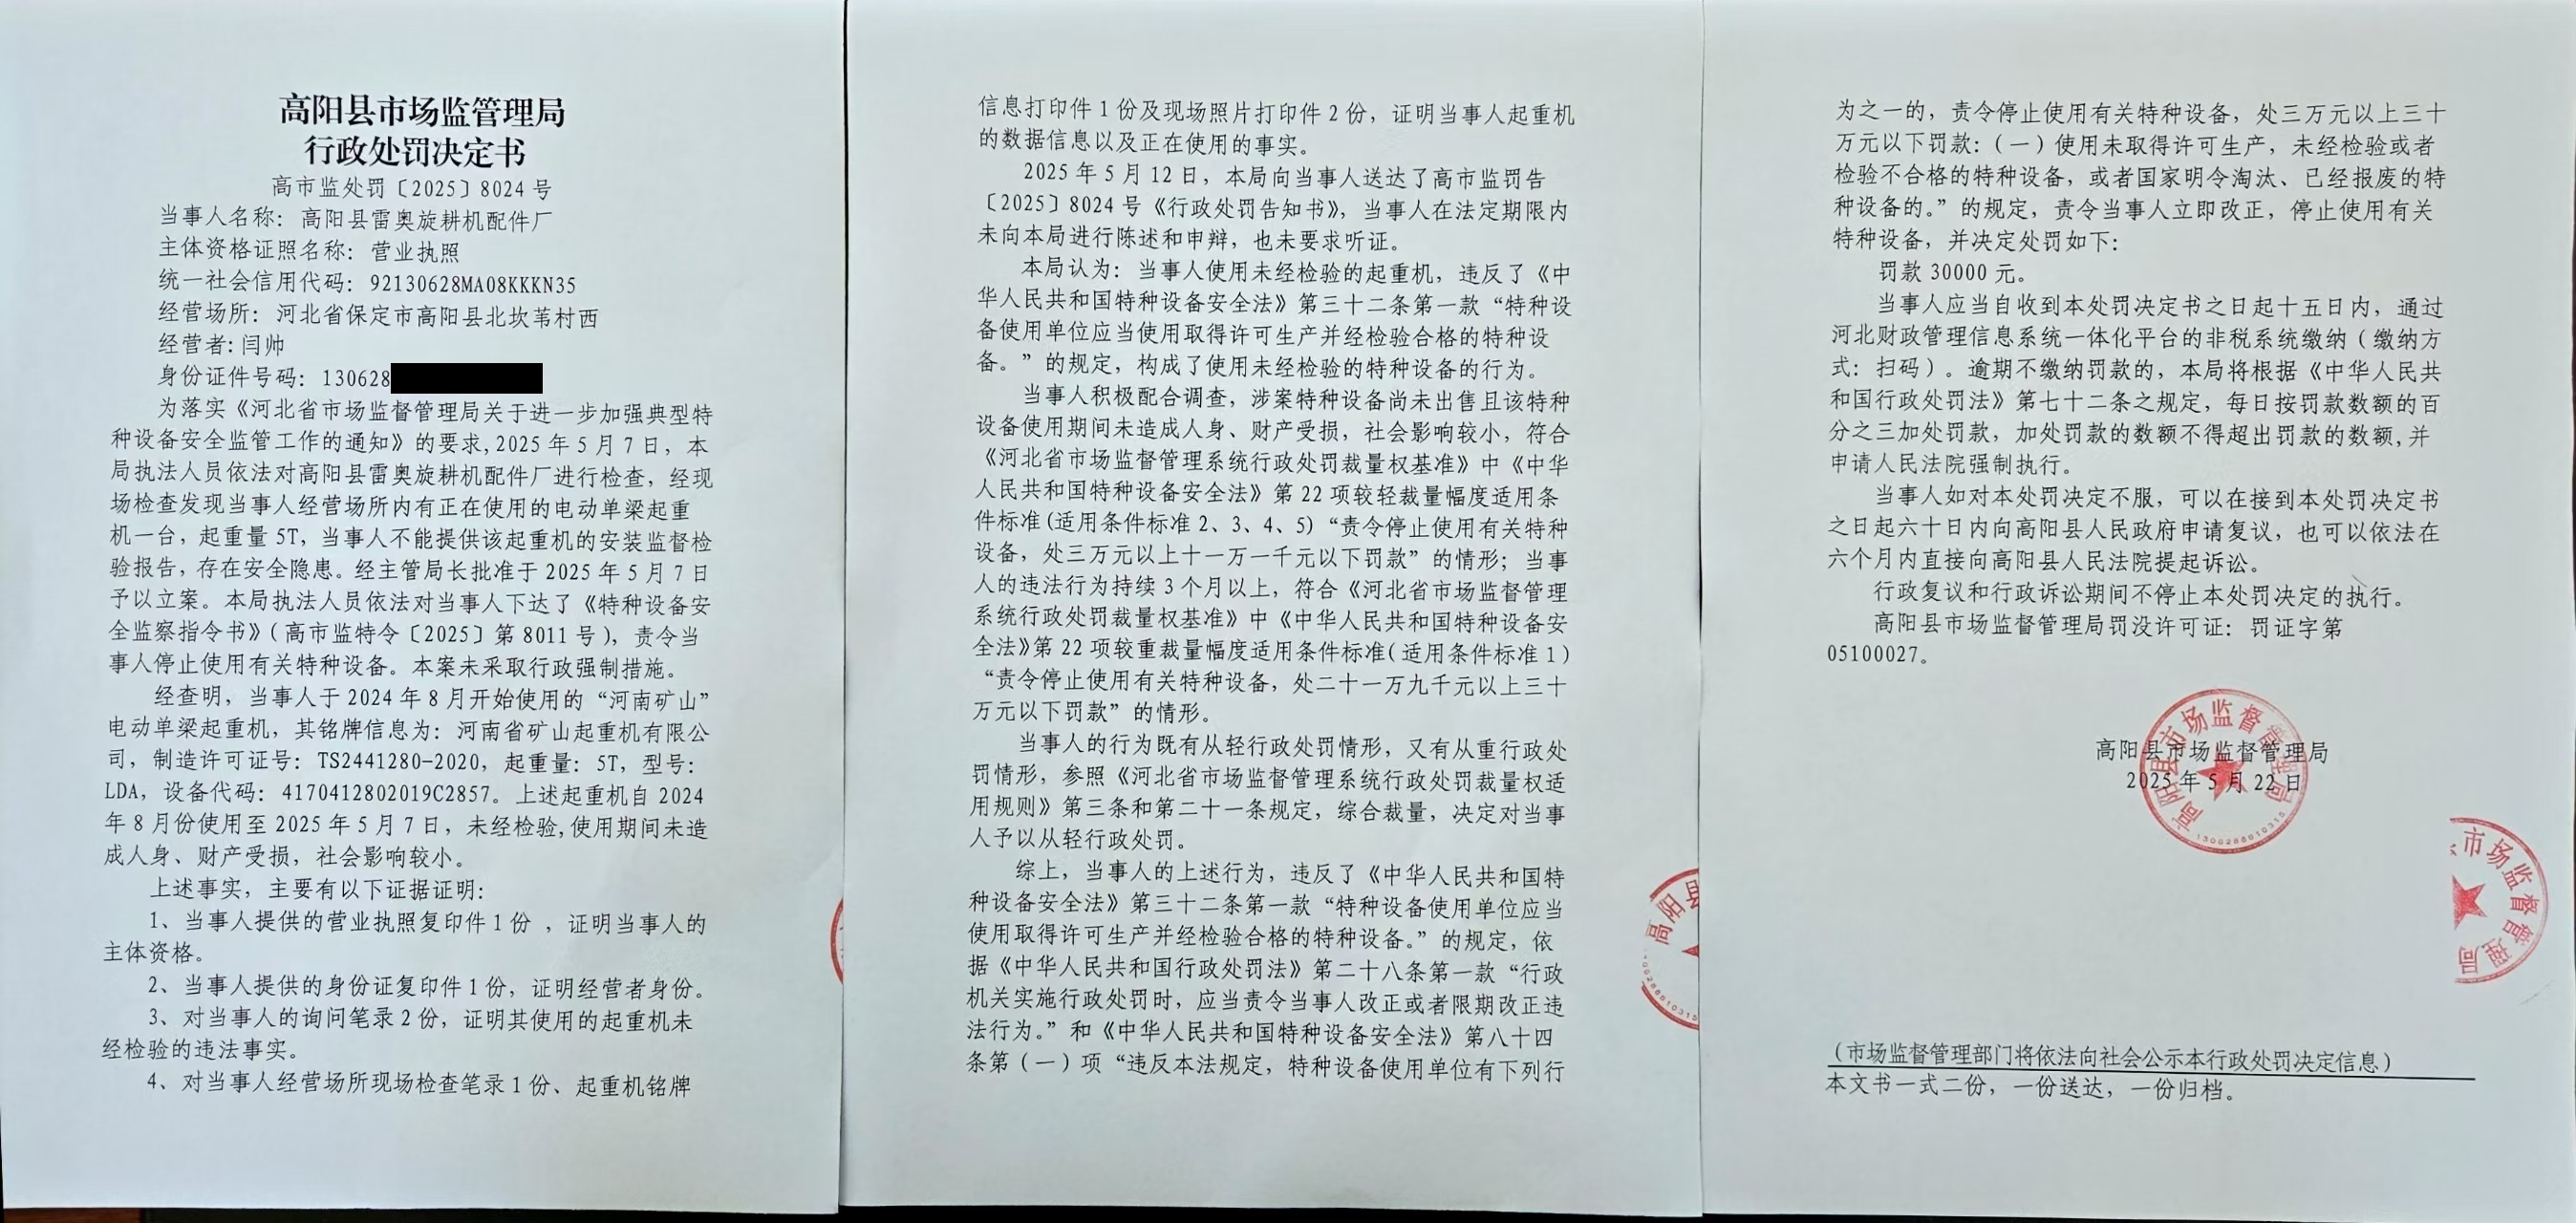 高阳县市场监管理局
行政处罚决定书
高市监处罚〔2025〕8024 号
当事人名称：高阳县雷奥旋耕机配件厂
主体资格证照名称：营业执照
统一社会信用代码：92130628MA08KKKN35
经营场所：河北省保定市高阳县北坎苇村西
经营者：闫帅
身份证件号码：130628
为落实《河北省市场监督管理局关于进一步加强典型特
种设备安全监管工作的通知》的要求,2025 年 5 月 7 日，本
局执法人员依法对高阳县雷奥旋耕机配件厂进行检查，经现
场检查发现当事人经营场所内有正在使用的电动单梁起重
机一台，起重量 5T，当事人不能提供该起重机的安装监督检
验报告，存在安全隐患。经主管局长批准于 2025 年 5 月 7 日
予以立案。本局执法人员依法对当事人下达了《特种设备安
全监察指令书》（高市监特令〔2025〕第 8011 号），责令当
事人停止使用有关特种设备。本案未采取行政强制措施。
经查明，当事人于 2024 年 8 月开始使用的“河南矿山”
电动单梁起重机，其铭牌信息为：河南省矿山起重机有限公
司，制造许可证号：TS2441280-2020，起重量：5T，型号：
LDA，设备代码：4170412802019C2857。上述起重机自 2024
年 8 月份使用至 2025 年 5 月 7 日，未经检验,使用期间未造
成人身、财产受损，社会影响较小。
上述事实，主要有以下证据证明：
1、当事人提供的营业执照复印件 1 份 ，证明当事人的
主体资格。
2、当事人提供的身份证复印件 1 份，证明经营者身份。
3、对当事人的询问笔录 2 份，证明其使用的起重机未
经检验的违法事实。
4、对当事人经营场所现场检查笔录 1 份、起重机铭牌
信息打印件 1 份及现场照片打印件 2 份，证明当事人起重机
的数据信息以及正在使用的事实。
2025 年 5 月 12 日，本局向当事人送达了高市监罚告
〔2025〕8024 号《行政处罚告知书》，当事人在法定期限内
未向本局进行陈述和申辩，也未要求听证。
本局认为：当事人使用未经检验的起重机，违反了《中
华人民共和国特种设备安全法》第三十二条第一款“特种设
备使用单位应当使用取得许可生产并经检验合格的特种设
备。”的规定，构成了使用未经检验的特种设备的行为。
当事人积极配合调查，涉案特种设备尚未出售且该特种
设备使用期间未造成人身、财产受损，社会影响较小，符合
《河北省市场监督管理系统行政处罚裁量权基准》中《中华
人民共和国特种设备安全法》第 22 项较轻裁量幅度适用条
件标准(适用条件标准 2、3、4、5)“责令停止使用有关特种
设备，处三万元以上十一万一千元以下罚款”的情形；当事
人的违法行为持续 3 个月以上，符合《河北省市场监督管理
系统行政处罚裁量权基准》中《中华人民共和国特种设备安
全法》第 22 项较重裁量幅度适用条件标准（适用条件标准 1）
“责令停止使用有关特种设备，处二十一万九千元以上三十
万元以下罚款”的情形。
当事人的行为既有从轻行政处罚情形，又有从重行政处
罚情形，参照《河北省市场监督管理系统行政处罚裁量权适
用规则》第三条和第二十一条规定，综合裁量，决定对当事
人予以从轻行政处罚。
综上，当事人的上述行为，违反了《中华人民共和国特
种设备安全法》第三十二条第一款“特种设备使用单位应当
使用取得许可生产并经检验合格的特种设备。”的规定，依
据《中华人民共和国行政处罚法》第二十八条第一款“行政
机关实施行政处罚时，应当责令当事人改正或者限期改正违
法行为。”和《中华人民共和国特种设备安全法》第八十四
条第（一）项“违反本法规定，特种设备使用单位有下列行
为之一的，责令停止使用有关特种设备，处三万元以上三十
万元以下罚款：（一）使用未取得许可生产，未经检验或者
检验不合格的特种设备，或者国家明令淘汰、已经报废的特
种设备的。”的规定，责令当事人立即改正，停止使用有关
特种设备，并决定处罚如下：
罚款 30000 元。
当事人应当自收到本处罚决定书之日起十五日内，通过
河北财政管理信息系统一体化平台的非税系统缴纳（缴纳方
式：扫码）。逾期不缴纳罚款的，本局将根据《中华人民共
和国行政处罚法》第七十二条之规定，每日按罚款数额的百
分之三加处罚款，加处罚款的数额不得超出罚款的数额,并
申请人民法院强制执行。
当事人如对本处罚决定不服，可以在接到本处罚决定书
之日起六十日内向高阳县人民政府申请复议，也可以依法在
六个月内直接向高阳县人民法院提起诉讼。
行政复议和行政诉讼期间不停止本处罚决定的执行。
高阳县市场监督管理局罚没许可证：罚证字第
05100027。
高阳县市场监督管理局
2025 年 5 月 22 日
高阳县市场监督管理局
高阳县
市场监督管理局
（市场监督管理部门将依法向社会公示本行政处罚决定信息）
本文书一式二份，一份送达，一份归档。